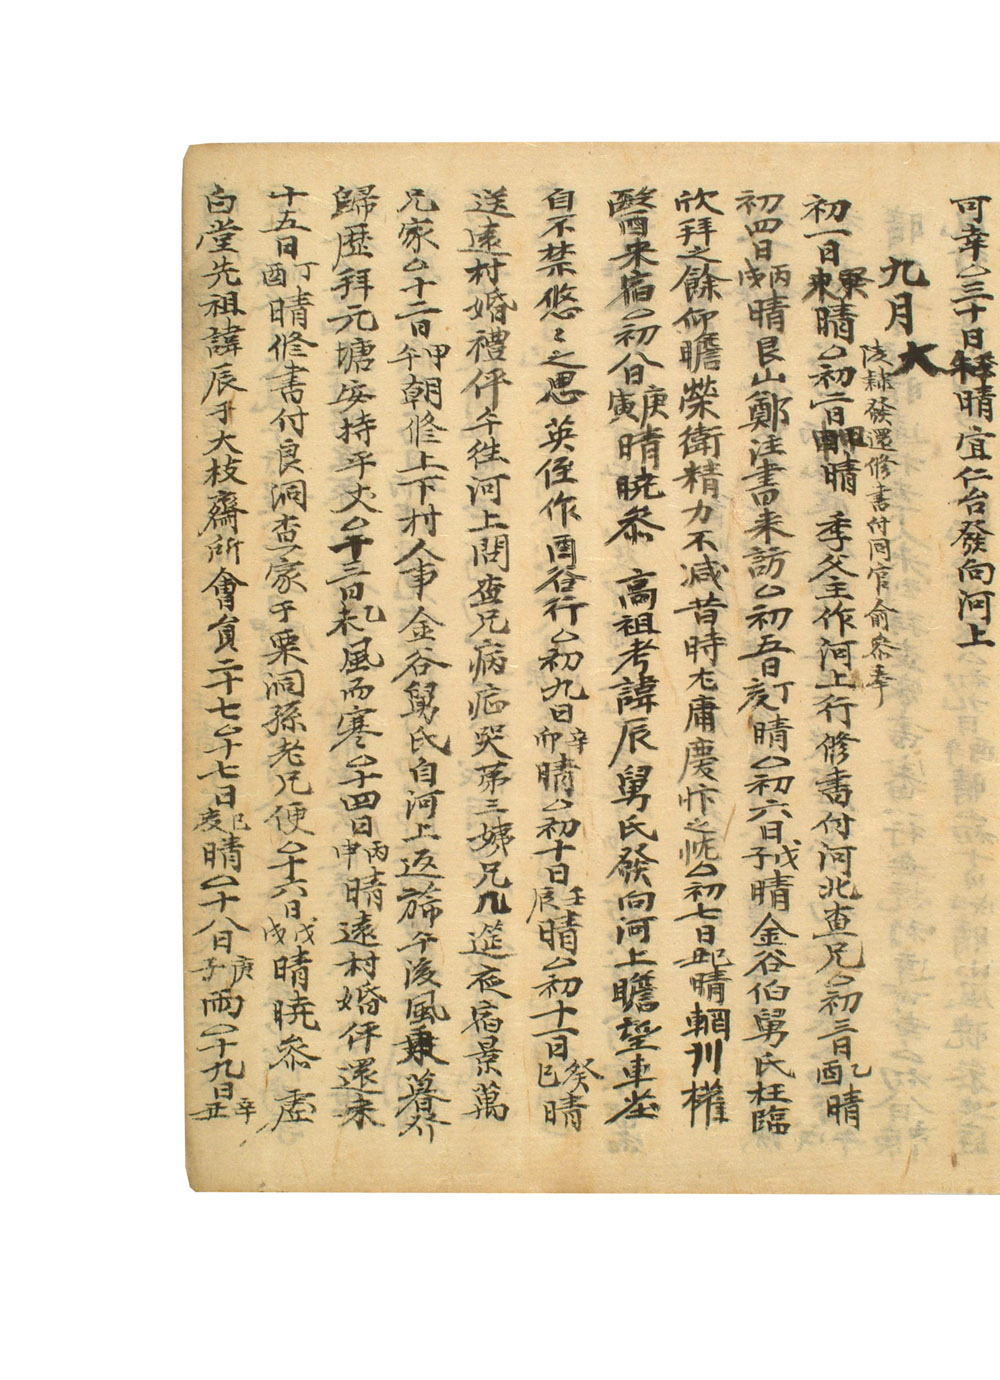 可幸△三十日晴宜仁台發向河上
九月大
初一日晴△初二日甲申晴 季父主作河上行修書付河北査兄△初三日乙酉晴
陵隷發還修書付同官俞叅奉
初四日丙戌晴艮山鄭注書來訪△初五日丁亥晴△初六日戊子晴金谷伯舅氏枉臨
欣拜之餘仰瞻榮衛精力不减昔時尤庸慶忭之忱△初七日己丑晴輞川權
醆酉來宿△初八日庚寅晴曉叅 高祖考諱辰舅氏發向河上瞻望車塵
自不禁悠〻之思英侄作酉谷行△初九日辛卯晴△初十日壬辰晴△初十一日癸巳晴
送遠村婚禮伻午徃河上問査兄病症哭第三姨兄几筵夜宿景萬
兄家△十二日甲午朝修上下村人事金谷舅氏自河上返旆午後風乘暮作
歸歷拜元塘安持平丈△十三日乙未風而寒△十四日丙申晴遠村婚伻還來
十五日丁酉晴修書付良洞査家于栗洞孫老兄便△十六日戊戌晴曉叅 虛
白堂先祖諱辰于大枝齋所會員二十七△十七日己亥晴△十八日庚子雨△十九日辛丑